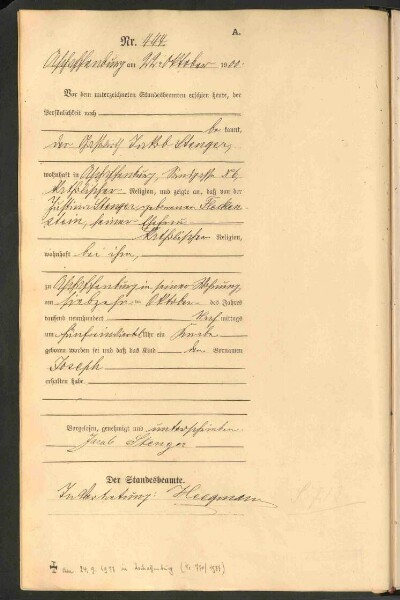 A.
Nr. 444.
Aschaffenburg am 22. Oktober 1900.
Vor dem unterzeichneten Standesbeamten erschien heute, der
Persönlichkeit nach
be kannt,
der Jakob Stenger,
wohnhaft in Aschaffenburg,
katholischer Religion, und zeigte an, daß von der
Justina Stenger, geborenen Flecken-
stein, seiner Ehefrau
katholischer Religion,
wohnhaft bei ihm,
zu Aschaffenburg in seiner Wohnung,
am siebzehnten Oktober des Jahres
tausend neunhundert Nach mittags
um Uhr ein Knabe
geboren worden sei und daß das Kind den Vornamen
Joseph
erhalten habe.
Vorgelesen, genehmigt und unterschrieben
Jacob Stenger
Der Standesbeamte.
In Vertretung: Hegmann
24. 9. in Aschaffenburg